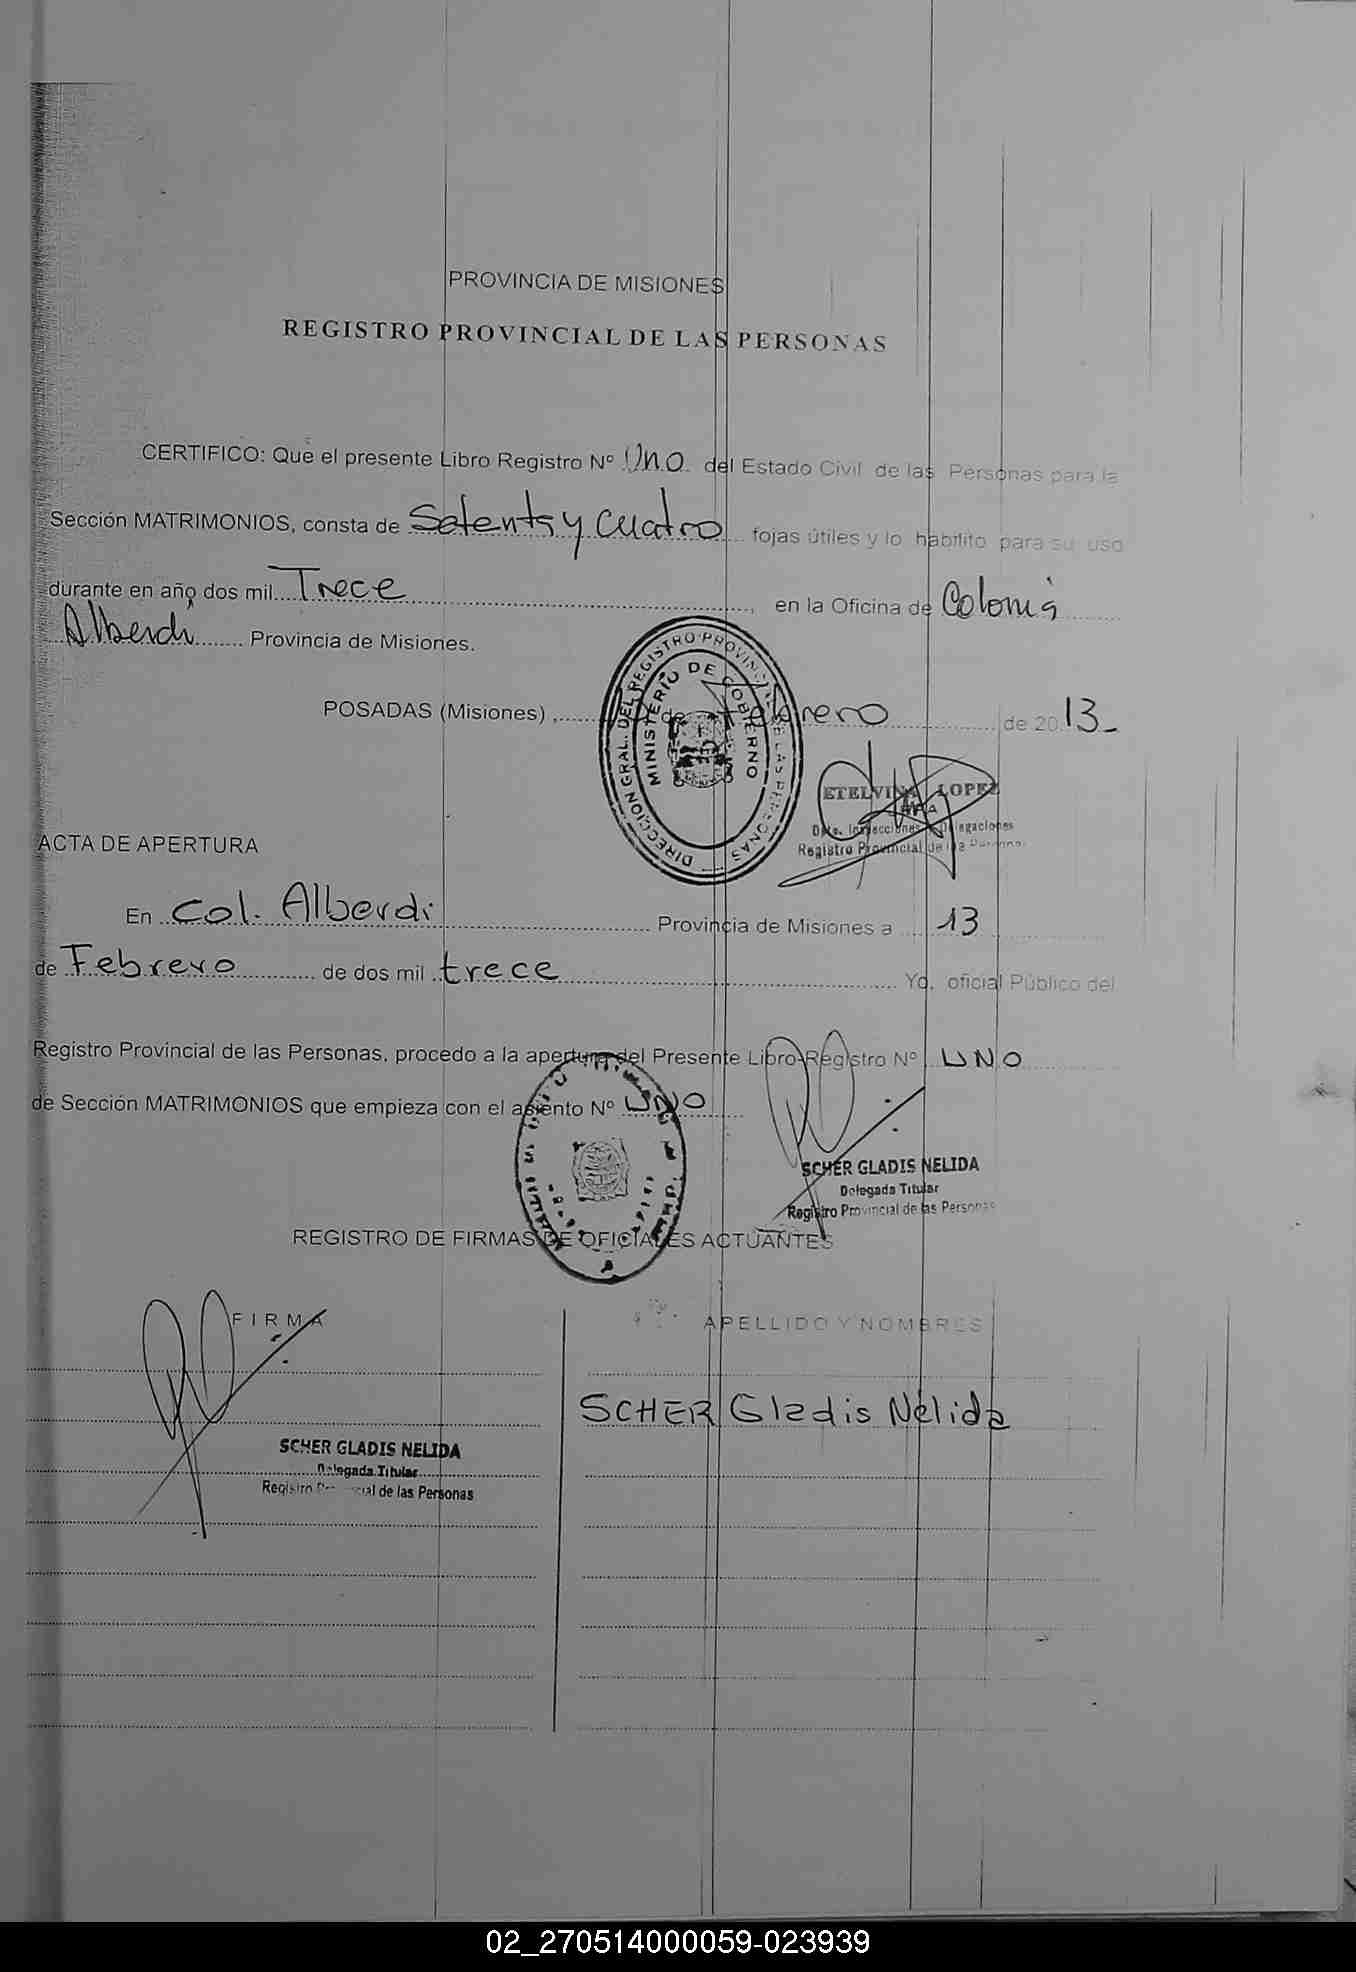 PROVINCIA DE MISIONES
REGISTRO PROVINCIAL DE LAS PERSONAS
CERTIFICO: Que el presente Libro Registro Nº Uno del Estado Civil de las Personas para la
Sección MATRIMONIOS, consta de Setenta y cuatro fojas útiles y lo habilito para su uso
durante en año dos mil Trece, en la Oficina de Colonia
Alberdi Provincia de Misiones.
POSADAS (Misiones), de Febrero de 2013
DIRECCION GRAL. DEL REGISTRO PROVINCIAL DE LAS PERSONAS
MINISTERIO DE GOBIERNO
ETELVINA LOPEZ
Dpto. Inspecciones Delegaciones
Registro Provincial de las Personas
ACTA DE APERTURA
En Col. Alberdi Provincia de Misiones a 13
de Febrero de dos mil trece Yo, oficial Público del
Registro Provincial de las Personas, procedo a la apertura del Presente Libro Registro Nº UNO
de Sección MATRIMONIOS que empieza con el asiento Nº UNO
SCHER GLADIS NELIDA
Delegada Titular
Registro Provincial de las Personas
REGISTRO DE FIRMAS DE OFICIALES ACTUANTES
FIRMA APELLIDO Y NOMBRES
SCHER Gladis Nélida
SCHER GLADIS NELIDA
Delegada Titular
Registro Provincial de las Personas
02_270514000059-023939